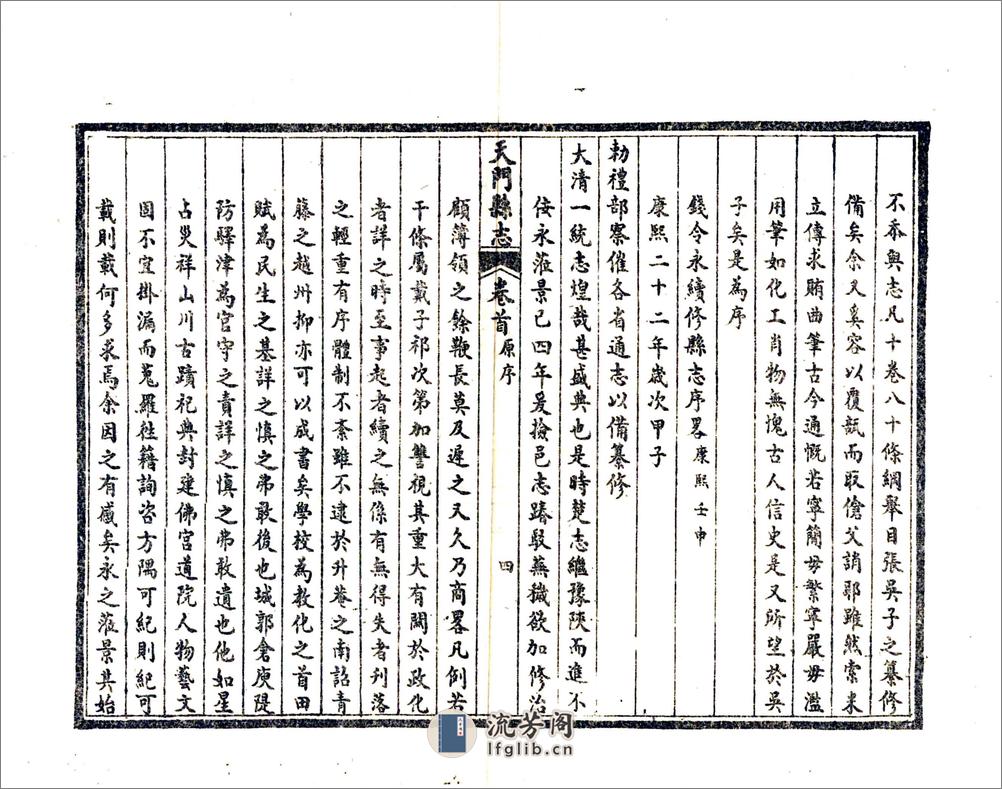 不忝輿志凡十卷八十條綱舉目張吳子之纂修
備矣余又奚容以覆瓿而取傖父誚耶雖然索米
立傳求賄曲筆古今通慨若寧簡毋繁寧嚴毋濫
用筆如化工肖物無愧古人信史是又所望於吳
子矣是為序
錢令永續修縣志序畧康熙壬申
康熙二十二年歲次甲子
勅禮部察催各省通志以備纂修
大清一統志煌哉甚盛典也是時楚志繼豫陝而進不
佞永蒞景已四年爰撿邑志踳駁蕪穢欲加修治
天門縣志 卷首 原序 四
顧簿領之餘鞭長莫及遲之又久乃商畧凡例若
干條屬戴子祁次第加讐視其重大有關於政化
者詳之時至事起者續之無係有無得失者刋落
之輕重有序體制不紊雖不逮於升菴之南詔青
藤之越州抑亦可以成書矣學校為教化之首田
賦為民生之基詳之慎之弗敢後也城郭倉庾隄
防驛津為官守之責詳之慎之弗敢遺也他如星
占災祥山川古蹟祀典封建佛宮道院人物藝文
固不宜掛漏而蒐羅徃籍詢咨方隅可紀則紀可
載則載何多求焉余因之有感矣永之蒞景其始
流芳阁
lfglib.cn